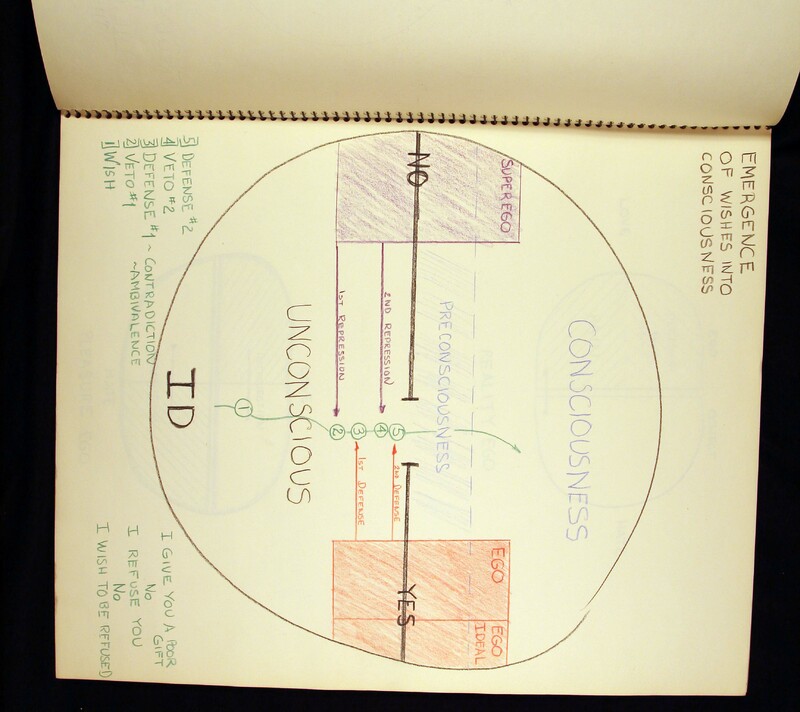 EMERGENCE
OF WISHES INTO
CONSCIOUSNESS
CONSCIOUSNESS
SUPEREGO
NO
PRECONSCIOUSNESS
EGO
EGO
IDEAL
YES
2ND REPRESSION
1ST REPRESSION
5
4
3
2
1
2ND DEFENSE
1ST DEFENSE
UNCONSCIOUS
ID
5 DEFENSE #2
4 VETO #2
3 DEFENSE #1 ~ CONTRADICTION
2 VETO #1 ~AMBIVALENCE
1 WISH
I GIVE YOU A POOR
GIFT
NO
I REFUSE YOU
NO
I WISH TO BE REFUSED